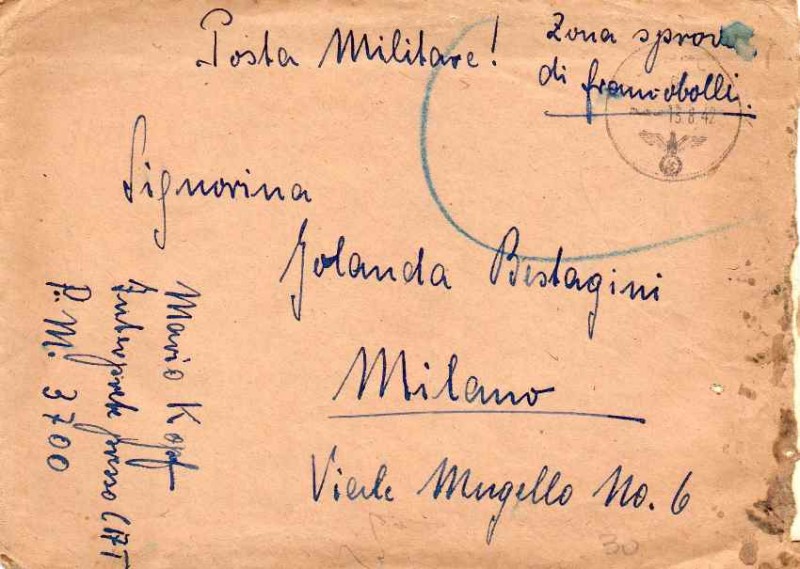 Posta Militare!
Zona sprovv.
di francobolli.
13.8.42
Signorina
Jolanda Bestagini
Milano
Viale Mugello No. 6
Mario Kopf
Interprete presso
P. M. 3700
30